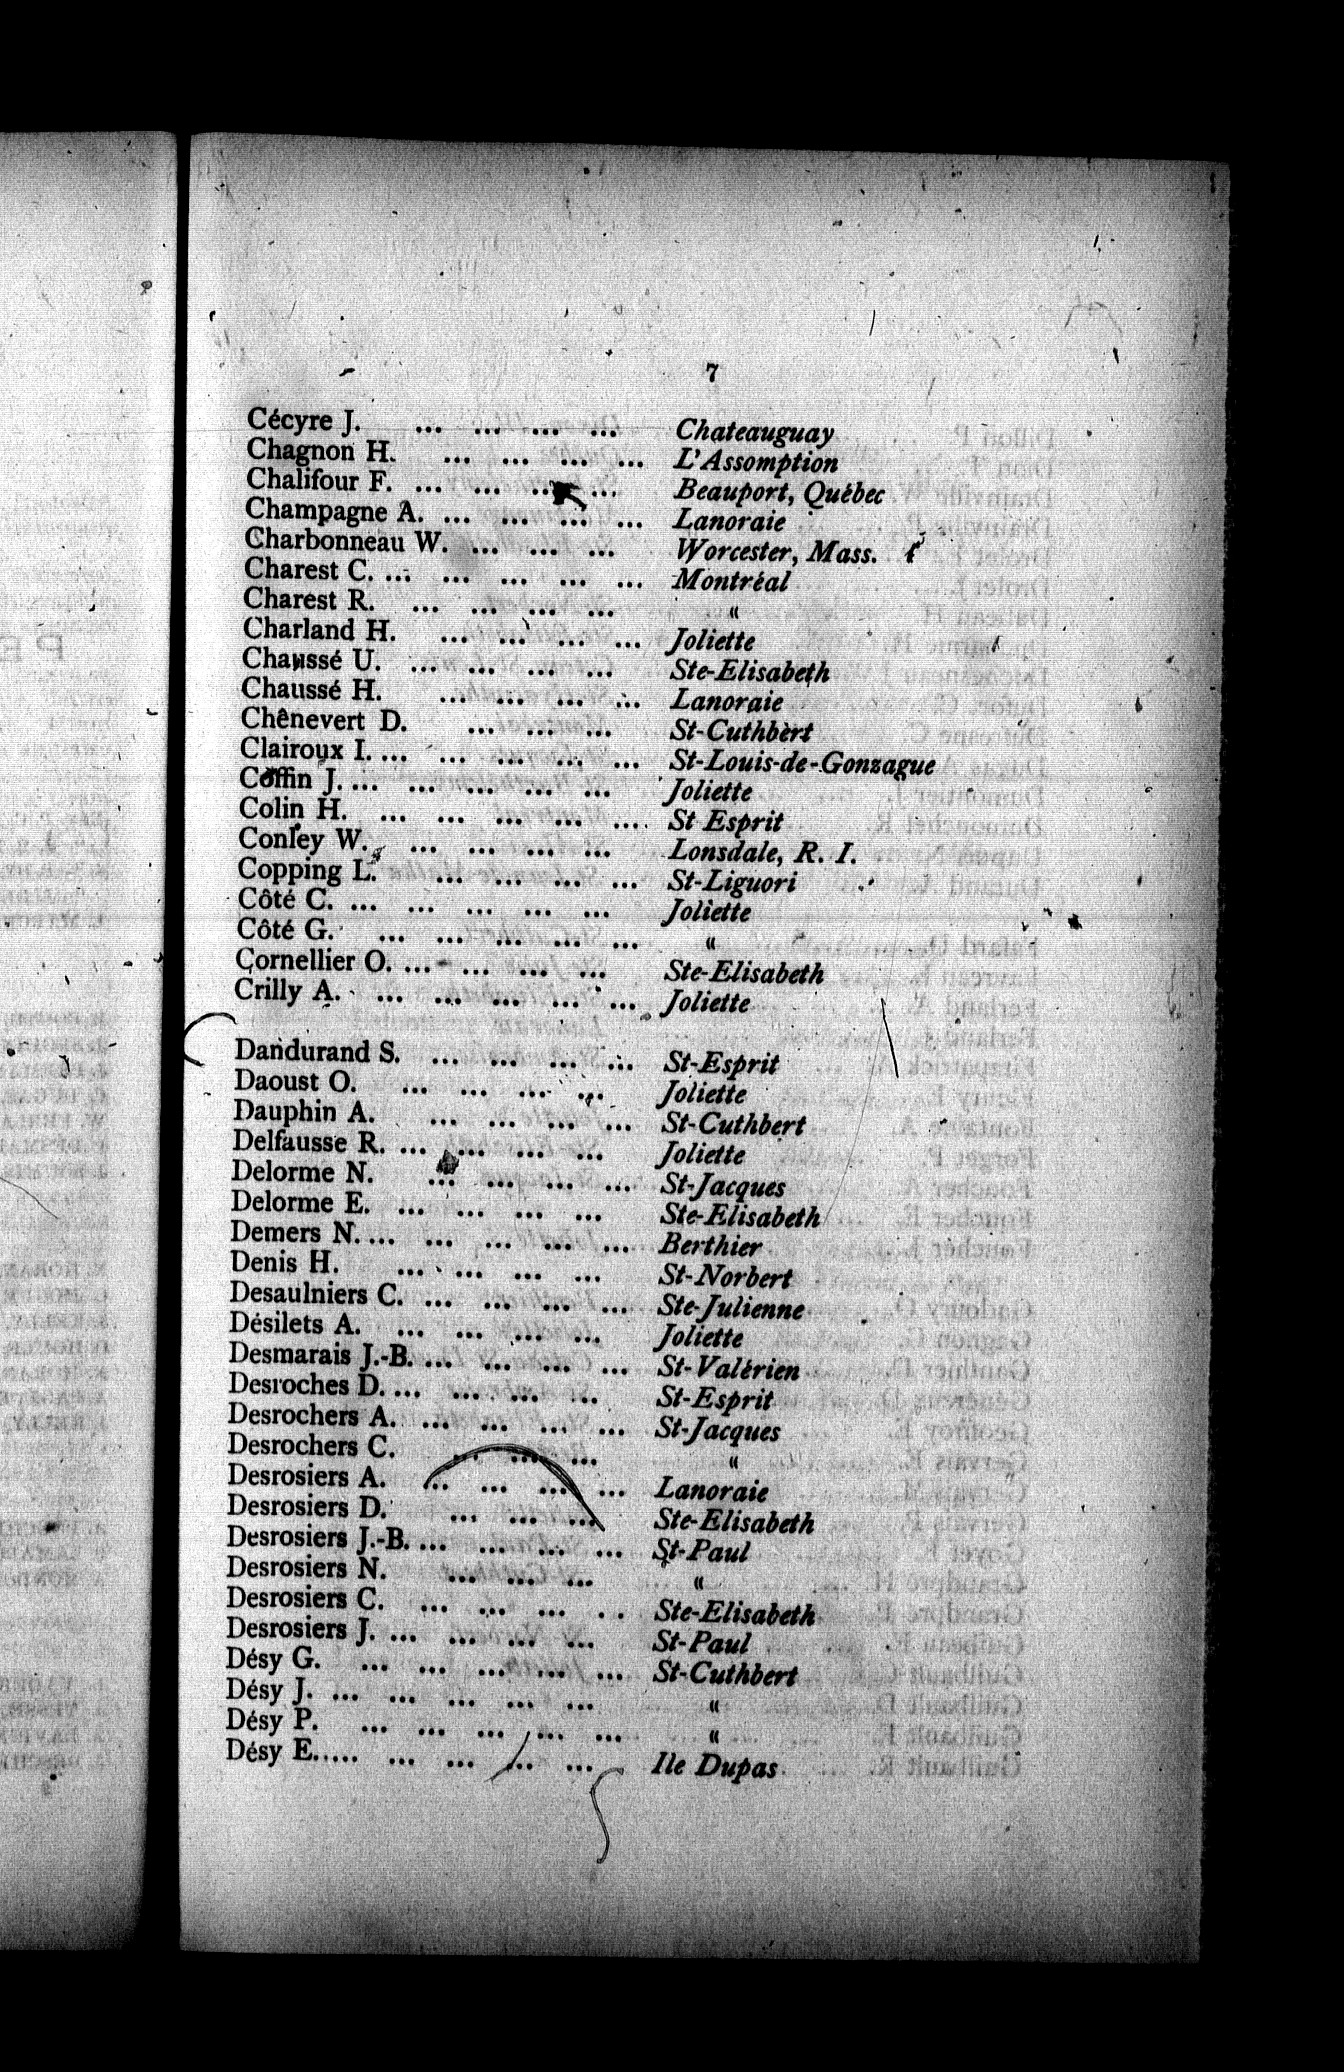 7
Cécyre J. ... ... ... ... Chateauguay
Chagnon H. ... ... ... ... L'Assomption
Chalifour F. ... ... ... ... Beauport, Québec
Champagne A. ... ... ... ... Lanoraie
Charbonneau W. ... ... ... Worcester, Mass.
Charest C. ... ... ... ... ... Montréal
Charest R. ... ... ... ... "
Charland H. ... ... ... ... Joliette
Chaussé U. ... ... ... ... Ste-Elisabeth
Chaussé H. ... ... ... ... Lanoraie
Chênevert D. ... ... ... St-Cuthbert
Clairoux I. ... ... ... ... ... St-Louis-de-Gonzague
Coffin J. ... ... ... ... ... Joliette
Colin H. ... ... ... ... ... St Esprit
Conley W. ... ... ... ... Lonsdale, R. I.
Copping L. ... ... ... ... St-Liguori
Côté C. ... ... ... ... ... Joliette
Côté G. ... ... ... ... ... "
Cornellier O. ... ... ... ... Ste-Elisabeth
Crilly A. ... ... ... ... ... Joliette
Dandurand S. ... ... ... ... St-Esprit
Daoust O. ... ... ... ... Joliette
Dauphin A. ... ... ... ... St-Cuthbert
Delfausse R. ... ... ... ... Joliette
Delorme N. ... ... ... ... St-Jacques
Delorme E. ... ... ... ... Ste-Elisabeth
Demers N. ... ... ... ... ... Berthier
Denis H. ... ... ... ... St-Norbert
Desaulniers C. ... ... ... ... Ste-Julienne
Désilets A. ... ... ... ... Joliette
Desmarais J.-B. ... ... ... ... St-Valérien
Desroches D. ... ... ... ... St-Esprit
Desrochers A. ... ... ... ... St-Jacques
Desrochers C. ... ... ... "
Desrosiers A. ... ... ... ... Lanoraie
Desrosiers D. ... ... ... Ste-Elisabeth
Desrosiers J.-B. ... ... ... ... St-Paul
Desrosiers N. ... ... ... "
Desrosiers C. ... ... ... . . Ste-Elisabeth
Desrosiers J. ... ... ... ... St-Paul
Désy G. ... ... ... ... ... St-Cuthbert
Désy J. ... ... ... ... ... "
Désy P. ... ... ... ... ... "
Désy E..... ... ... ... ... Ile Dupas